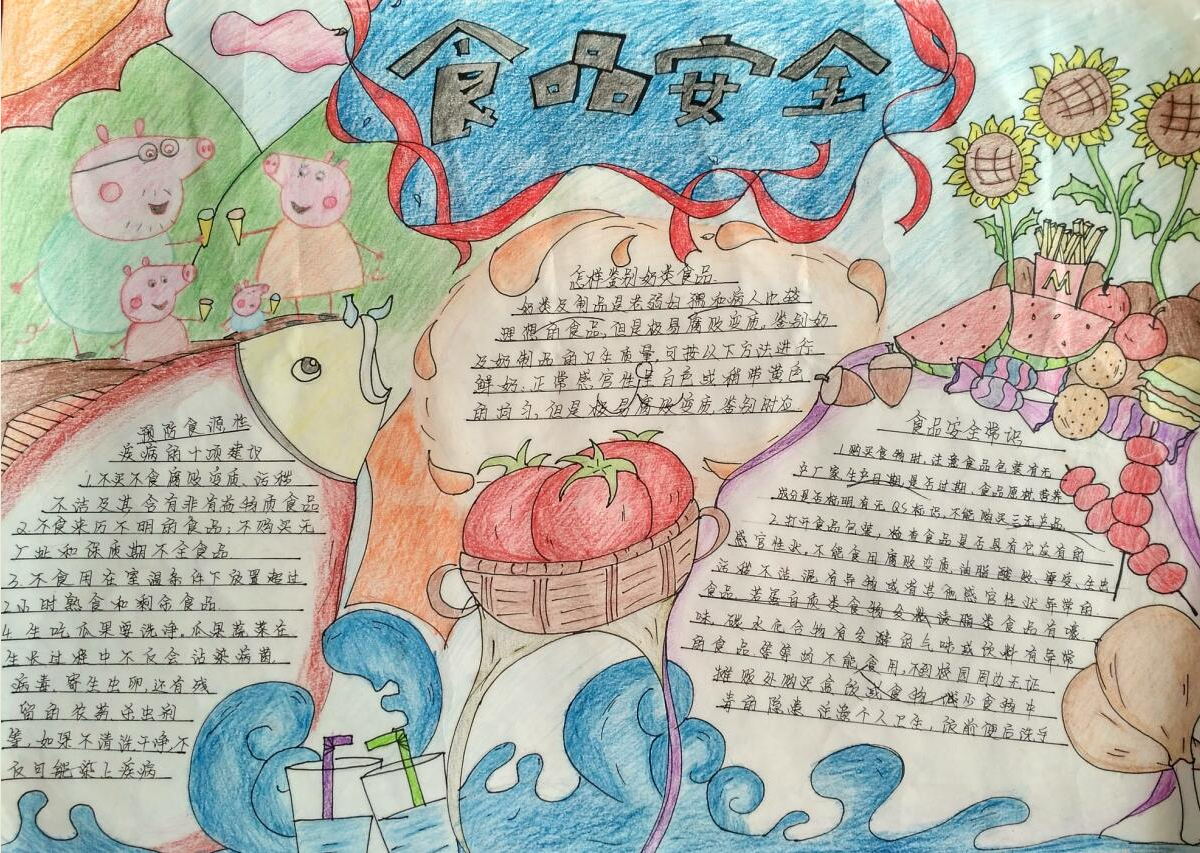 食品安全
怎样鉴别奶类食品
奶类及制品是老弱妇孺和病人比较
理想的食品,但是极易腐败变质,鉴别奶
及奶制品的卫生质量,可按以下方法进行
鲜奶:正常感官性呈白色或稍带黄色
的均匀,但是极易腐败变质,鉴别时应
预防食源性
疾病的十项建识
1.不买不食腐败变质、污秽
不洁及其含有非有益物质食品
2.不食来历不明的食品;不购买无
厂址和保质期不全食品
3.不食用在室温条件下放置超过
2小时熟食和剩余食品
4.生吃瓜果要洗净,瓜果蔬菜在
生长过难中不反会沾染病菌、
病毒、寄生虫卵,还有残
留的农药杀虫剂
等,如果不清洗干净,不
反可能染上疾病
食品安全常识
1.购买食物时,注意食品包装有无
生产厂家,生产日期,是否过期,食品原材、营养
成分是否标明,有无QS标识,不能购买三无产品
2.打开食品包装,检查食品是否具有它应有的
感官性状,不能食用腐败变质,油脂酸败、霉变、生虫
污秽不洁,混有异物或有其他感官性状异常的
食品,若蛋白质类食物发粘,渍脂类食品有嚎
味,碳水化合物有发酵的气味或饮料有异常
的食品等等均不能食用,不到校园周边无证
摊贩处购买盒饭或食物,减少食物中
毒的隐患,注意个人卫生,饭前便后洗手
M